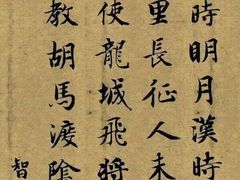 時明月漢時
里長征人未
使龍城飛將
教胡馬渡陰
智